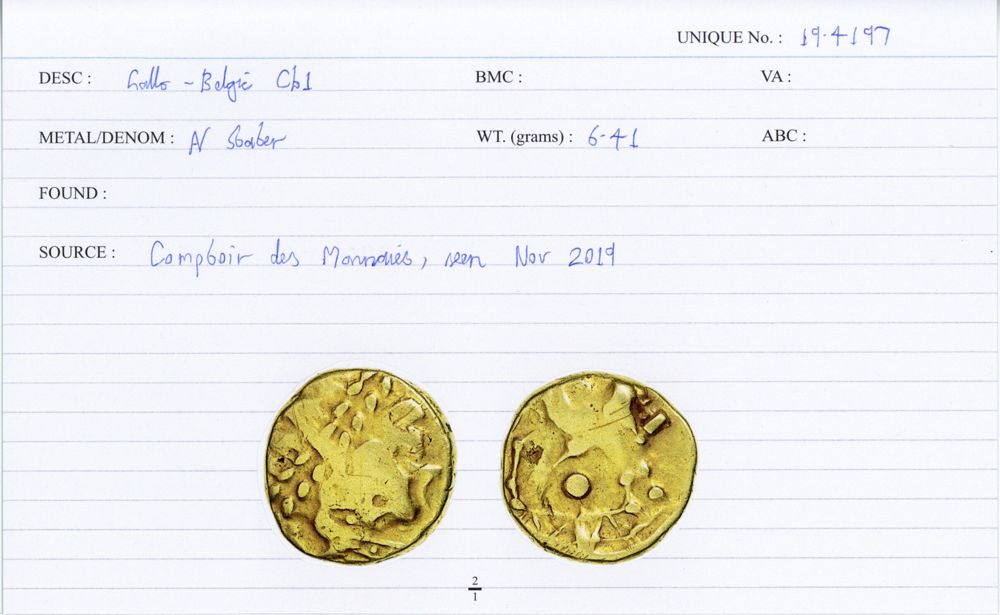 UNIQUE No. : 19.4197
DESC : Gallo-Belgic Cb1 BMC : VA :
METAL/DENOM : AV Stater WT. (grams) : 6.41 ABC :
FOUND :
SOURCE : Comptoir des Monnaies, seen Nov 2019
2
1